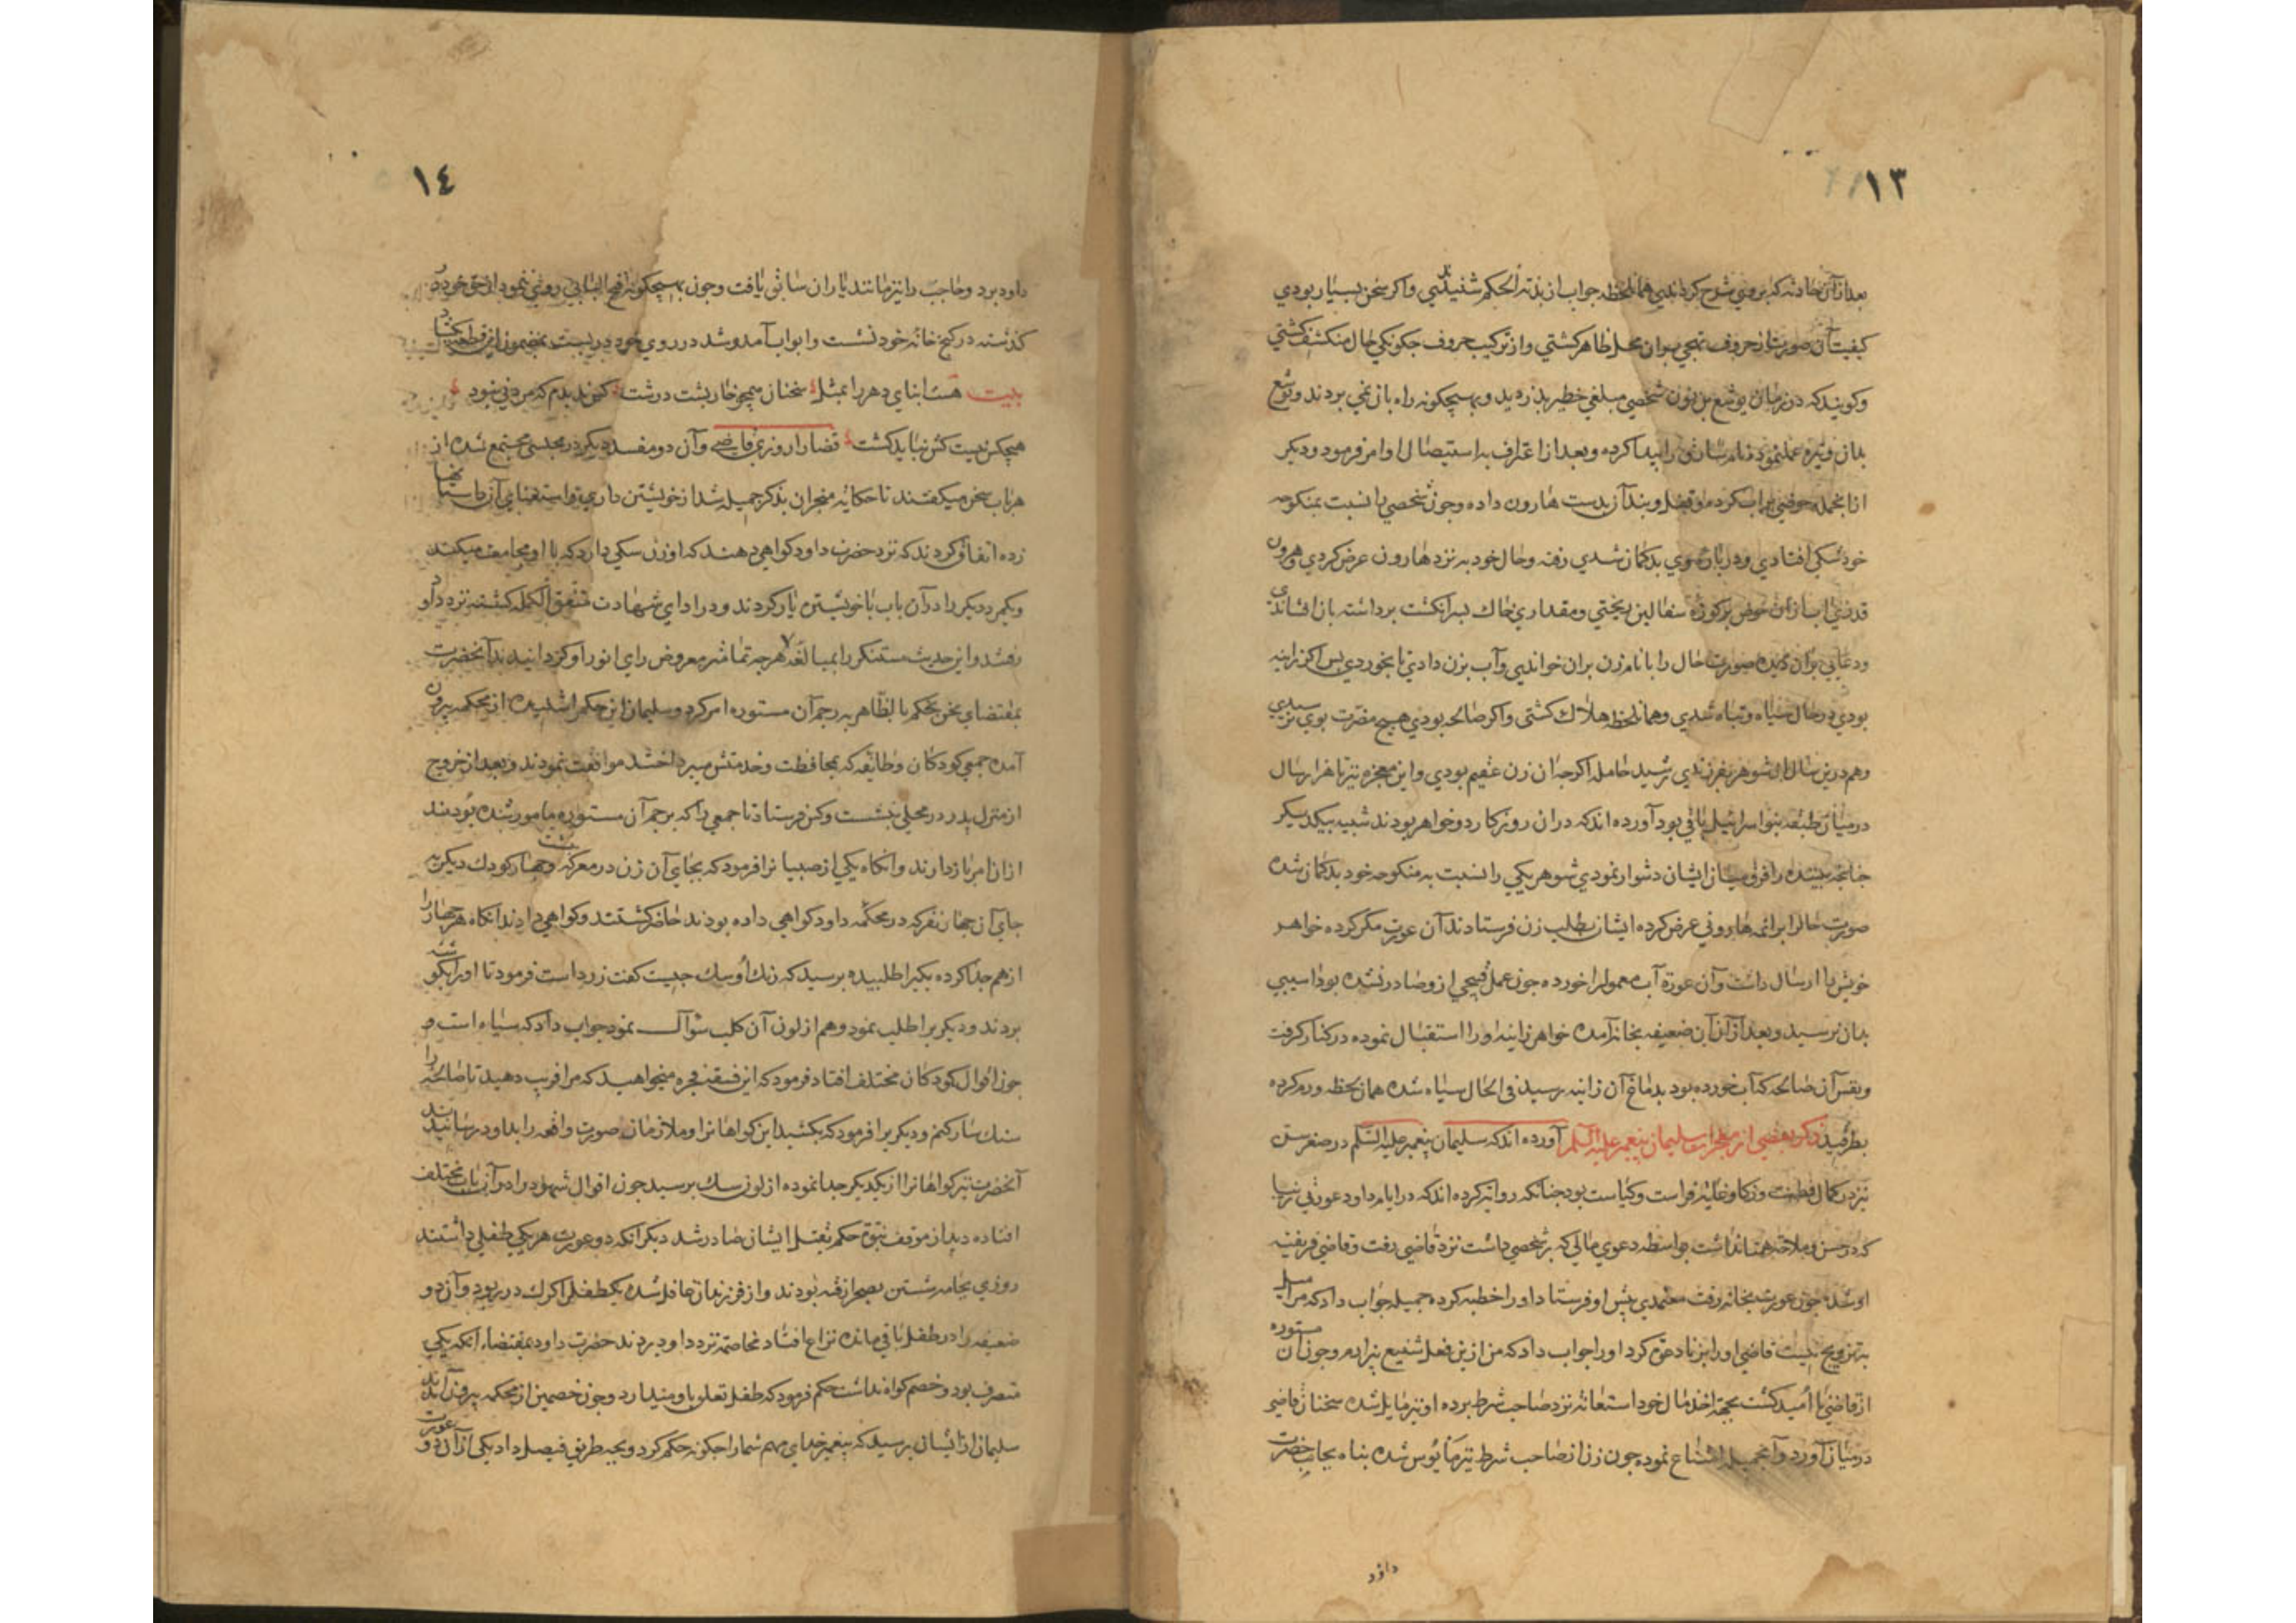 ١٣
بعد ازان حادثه که بروی شرح کردندی همان لحظه جواب از بذته الحکم شنیدندی واکر سخن بسیار بودی
کیفیت آن صورت از حروف تهجی بران محل ظاهر کشتی واز ترکیب حروف چکونکی حال منکشف کشتی
وکویند که در زمان یوشع بن نون شخصی مبلغی خطیر بدزدید وبهیچکونه راه باز نمی بردند ویوشع
بدان وتیره عمل نموده نام سارق را پیدا کرده وبعد از اعتراف به استیصال او امر فرمود ودیکر
ازانجمله حوضی پراب کرده بدست هارون داده وچون شخصی را نسبت بمنکوحه
خود شکی افتادی ودر باره وی بدکمان شدی رفته وحال خود به نزد هارون عرض کردی وهرون
قدری اب ازان حوض بر کوزه سفالین ریختی ومقداری خاک بسر انکشت برداشته بان افشاندی
ودعایی بران دمیده صورت حال را با نام زن بران خواندی وآب بزن دادی تا بخوردی پس اکر زانیه
بودی در حال سیاه وتباه شدی وهمان لحظه هلاک کشتی واکر صالحه بودی هیچ مضرت بوی نرسیدی
وهم درین سال از شوهر بفرزندی رسید حامله اکرچه ان زن عقیم بودی واین معجزه نیز تا هزار سال
در میان طبقه بنو اسرائیل باقی بود آورده اند که دران روزکار دو خواهر بودند شبیه بیکدیکر
چنانچه بیننده را فرق میان ایشان دشوار نمودی شوهر یکی را نسبت به منکوحه خود بدکمان شده
صورت حال را بر ائمه هارونی عرض کرده ایشان بطلب زن فرستادند آن عورت مکر کرده خواهر
خویش را ارسال داشت وآن عورة آب معمول را خورده چون عمل قبیحی ازو صادر نشده بود اسیبی
بدان نرسید وبعد ازان آن ضعیفه بخانه آمده خواهر زانیه اورا استقبال نموده در کنار کرفت
ونفس آن صالحه که آب خورده بود بدماغ آن زانیه رسید فی الحال سیاه شده همان لحظه ورم کرده
بطرقید ذکر بعضی از معجزات سلیمان پیغمبر علیه السلم آورده اند که سلیمان پیغمبر علیه السلم در صغر سن
نیز در کمال فطنت وذکا وغایة فراست وکیاست بود چنانکه روایة کرده اند که در ایام داود عورتی زیبا
که در حسن وملاحة همتا نداشت بواسطه دعوی مالی که بر شخصی داشت نزد قاضی رفت وقاضی فریفته
او شده چون عورت بخانه رفت معتمدی پیش او فرستاد اورا خطبه کرده جمیله جواب داد که مرا میل
بتزویج نیست قاضی اورا بزنا دعوة کرد اورا جواب داد که من ازین فعل شنیع بیزارم وچون آن مستوره
از قاضی نا امید کشت بجهة اخذ مال خود استعانه نزد صاحب شرط برده او نیز مایل شده سخنان قاضی
در میان آورد وآنجمیله امتناع نموده چون زن از صاحب شرط نیز مایوس شده پناه بجانب حضرت
داود
١٤
داود برد وحاجب را نیز مانند یاران سابق یافت وچون بهیچکونه فتح البابی روی ننمود از حق خود در
کذشته در کنج خانه خود نشست وابواب آمد وشد در روی خود در بست بمضمون این قطعه
بیت هست ابنای دهر را بمثل سخنان همچو خارپشت درشت کس ندیدم که مردنی نبود
هیچکس نیست کش نباید کشت قضارا روزی قاضی وآن دو مفسد دیکر در مجلسی مجتمع شده از
هر باب سخن میکفتند تا حکایة منجر ان بذکر جمیله شد از خویشتن داری واستغنای آن داستانها
زده اتفاق کردند که نزد حضرت داود کواهی دهند که او زن سکی دارد که با او مجامعت میکند
ویکمرد دیکر را در آن باب با خویشتن یار کردند ودر ادای شهادت متفق الکلمه کشته نزد داود
رفتند واین حدیث مستنکر را بمبالغه هرچه تمامتر معروض رای انور او کردانیدند آنحضرت
بمقتضای نحن نحکم بالظاهر برجم آن مستوره امر کرد وسلیمان این حکم را شنیده از محکمه بیرون
آمده جمعی کودکان وطایفه که بمحافظت وخدمتش میپرداختند موافقت نمودند وبعد از خروج
از منزل پدر در محلی بنشست وکس فرستاد تا جمعی را که برجم آن مستوره مامور شده بودند
ازان امر باز دارند وانکاه یکی از صبیان را فرمود که بجای آن زن در معرکه نشست وچهار کودک دیکر به
جای آن چهار نفر که در محکمه داود کواهی داده بودند حاضر کشتند وکواهی دادند انکاه هر چهار را
از هم جدا کرده یکیرا طلبیده پرسید که رنک اوسک چیست کفت زرد است فرمود تا اورا بکوشه
بردند ودیکریرا طلب نمود وهم از لون آن کلب سؤال نمود جواب داد که سیاه است و
چون اقوال کودکان مختلف افتاد فرمود که این فسقه فجره میخواهید که مرا فریب دهید تا صالحه را
سنکسار کنم ودیکریرا فرمود که بکشید این کواهانرا وملازمان صورت واقعه را بداود رسانیدند
آنحضرت نیز کواهانرا از یکدیکر جدا نموده از لون سک پرسید چون اقوال شهود را در آن باب مختلف
افتاده دید از موقف نبوة حکم بقتل ایشان صادر شد دیکر آنکه دو عورت هر یکی طفلی داشتند
روزی بجامه شستن بصحرا رفته بودند واز فرزندان غافل شده یکطفل را کرک در ربود وآن دو
ضعیفه را در طفل باقی مانده نزاع افتاد مخاصمه نزد داود بردند حضرت داود بمقتضاء انکه یکی
متصرف بود وخصم کواه نداشت حکم فرمود که طفل تعلق باو میدارد وچون خصمین از محکمه بیرون آمدند
سلیمان از ایشان پرسید که پیغمبر خدای مهم شمارا چکونه حکم کرد وبچه طریق فیصل داد یکی از آن دو عورت